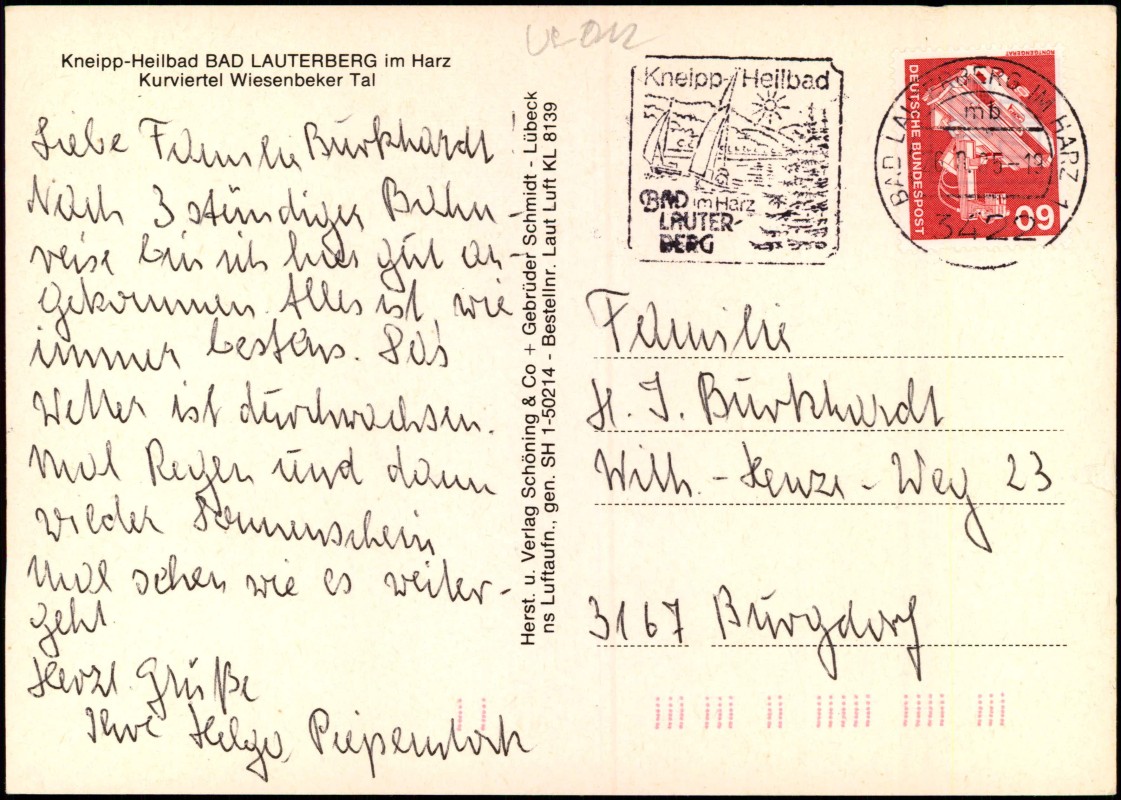 Kneipp-Heilbad BAD LAUTERBERG im Harz
Kurviertel Wiesenbeker Tal
Liebe Familie Burkhardt
Nach 3 stündiger Bahn-
reise bin ich hier gut an-
gekommen. Alles ist wie
immer bestens. Das
Wetter ist durchwachsen.
Mal Regen und dann
wieder Sonnenschein
Mal sehen wie es weiter-
geht.
Herzl. Grüße
Ihre Helga
Herst. u. Verlag Schöning & Co + Gebrüder Schmidt - Lübeck
ns Luftaufn., gen. SH 1-50214 - Bestellnr. Laut Luft KL 8139
Kneipp-Heilbad
BAD im Harz
LAUTER-
BERG
BAD LAUTERBERG IM HARZ 1
mb
3422
RÖNTGENGERÄT
DEUTSCHE BUNDESPOST
60
Familie
H. J. Burkhardt
Wilh.-Henze-Weg 23
3167 Burgdorf